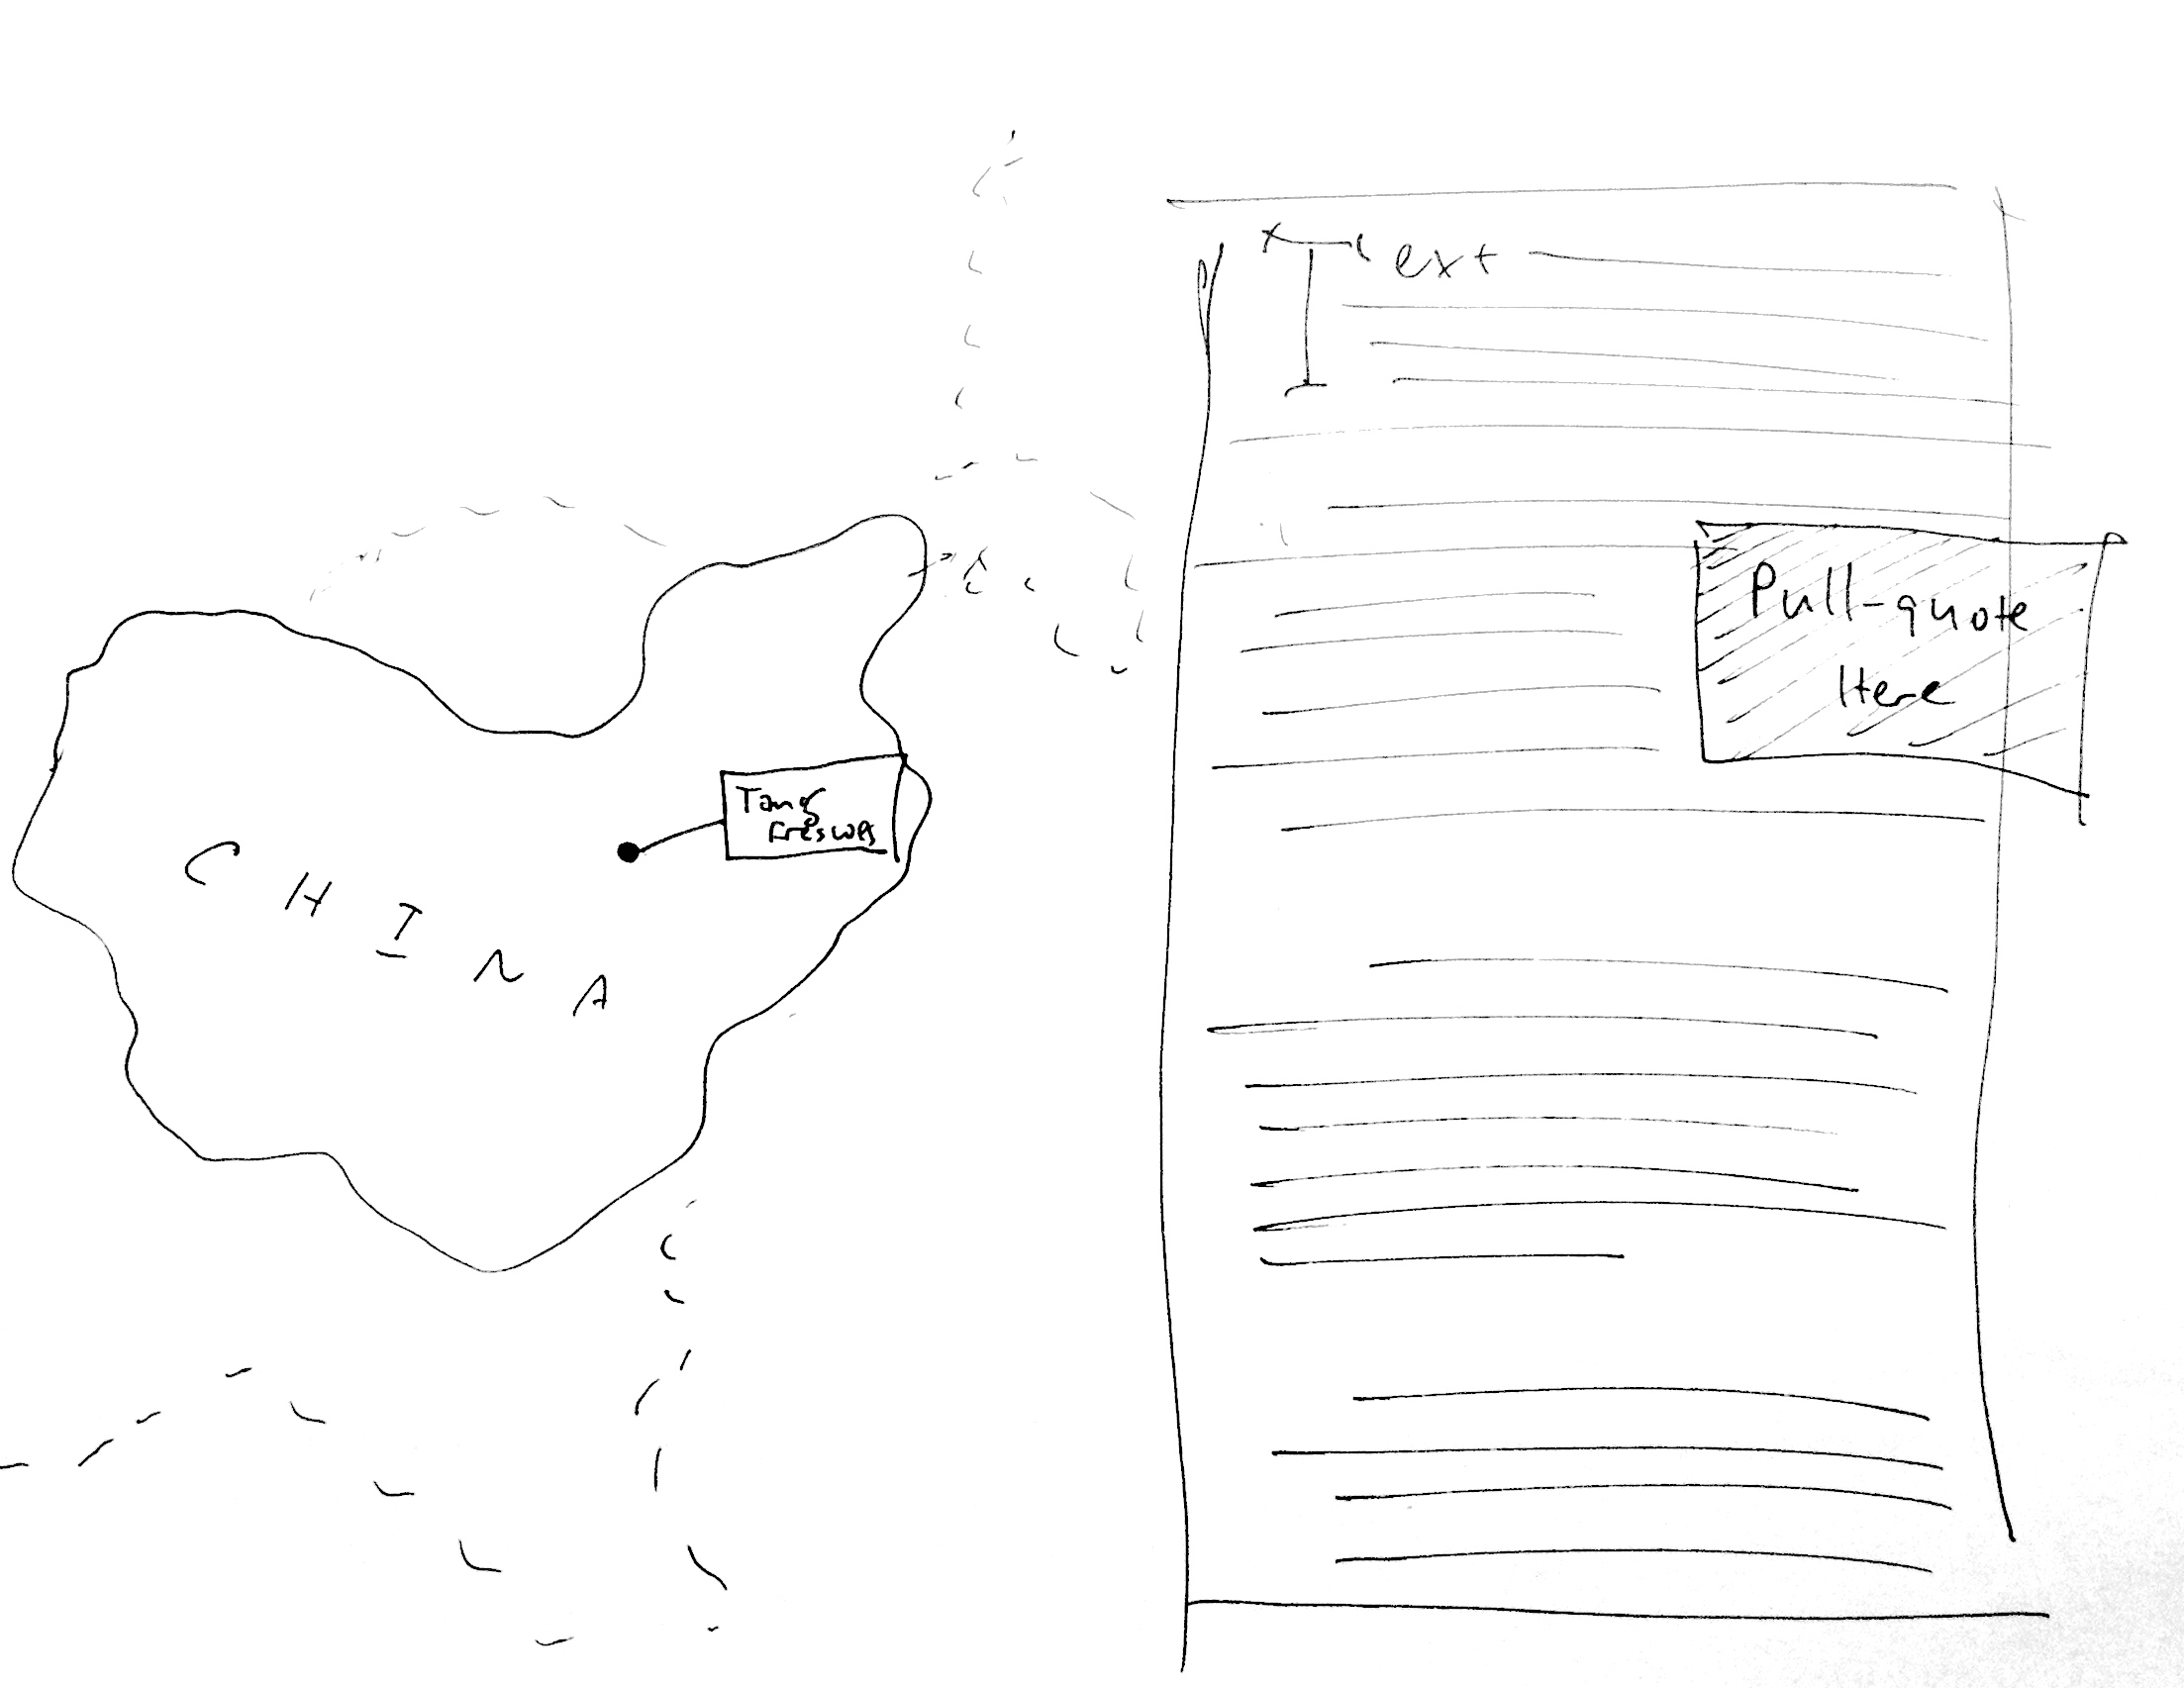 CHINA
Tang
Frescoes
Text
Pull-quote
Here